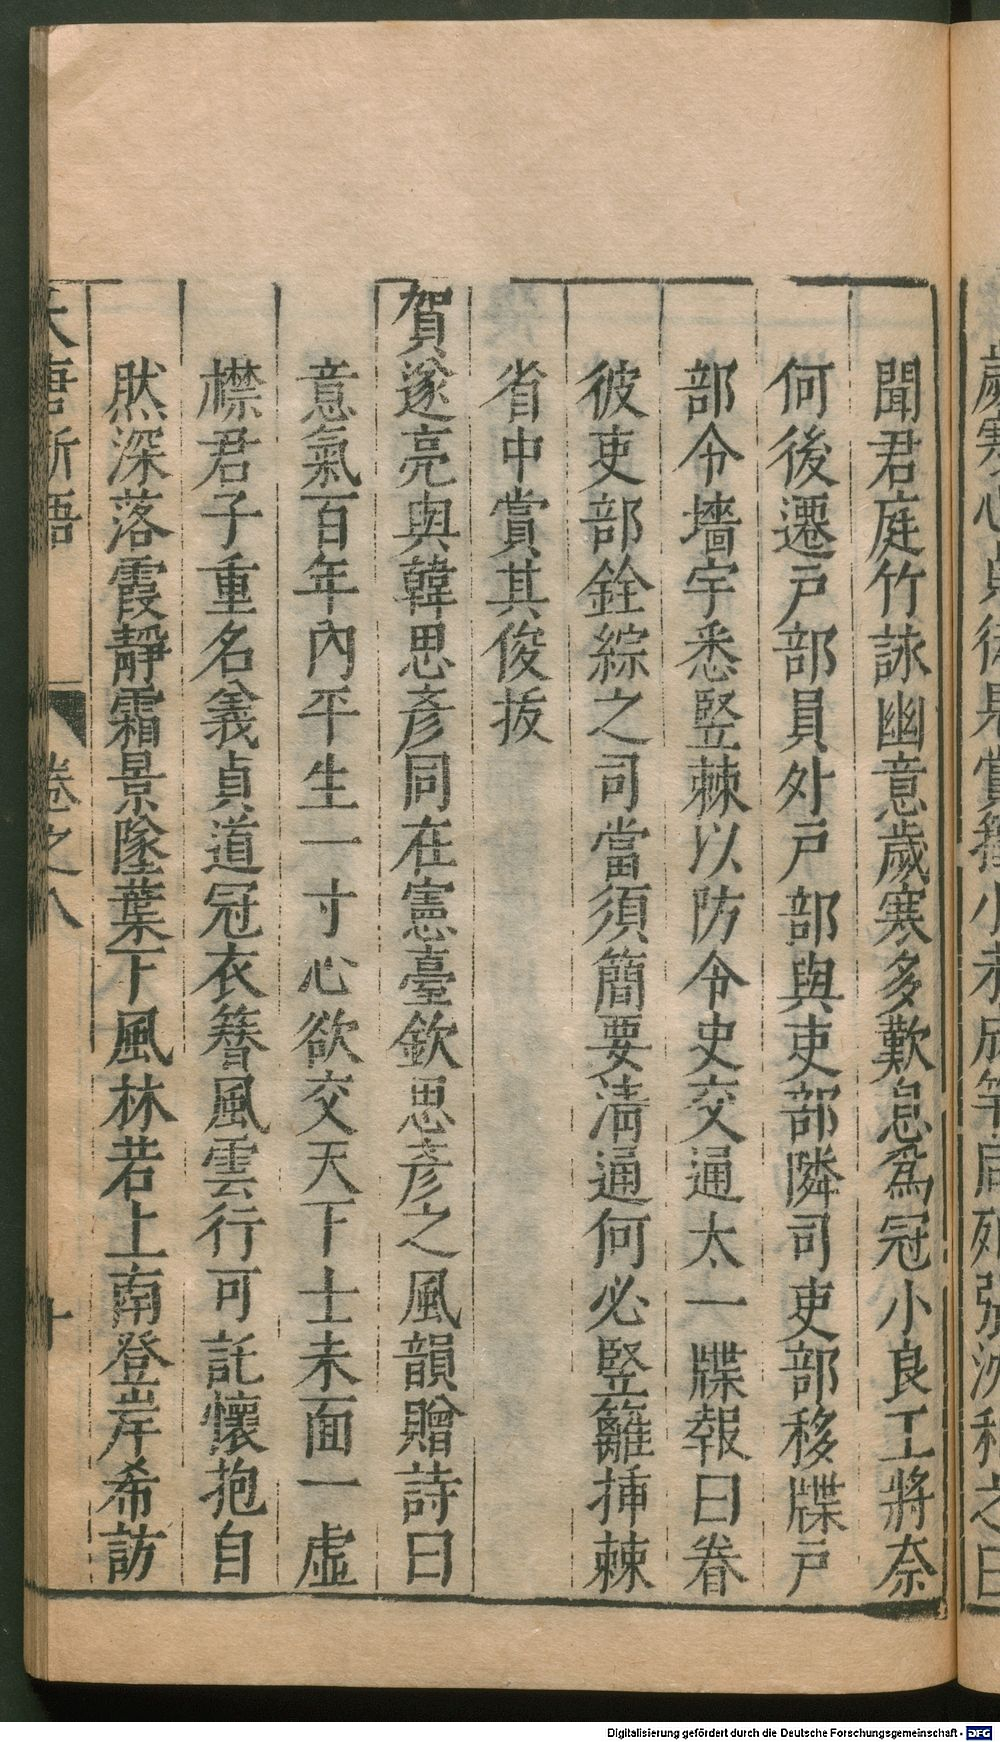 聞君庭竹詠幽意歲寒多歎息爲冠小良工將奈
何後遷戶部員外戶部與吏部隣司吏部移牒戶
部令墻宇悉竪棘以防令史交通太一牒報曰眷
彼吏部銓綜之司當須簡要清通何必竪籬揷棘
省中賞其俊拔
賀遂亮與韓思彥同在憲臺欽思彥之風韻贈詩曰
意氣百年內平生一寸心欲交天下士未面一虛
襟君子重名義貞道冠衣簪風雲行可託懷抱自
然深落霞靜霜景墜葉下風林若上南登岸希訪
大唐新語
卷之八
十
Digitalisierung gefördert durch die Deutsche Forschungsgemeinschaft - DFG